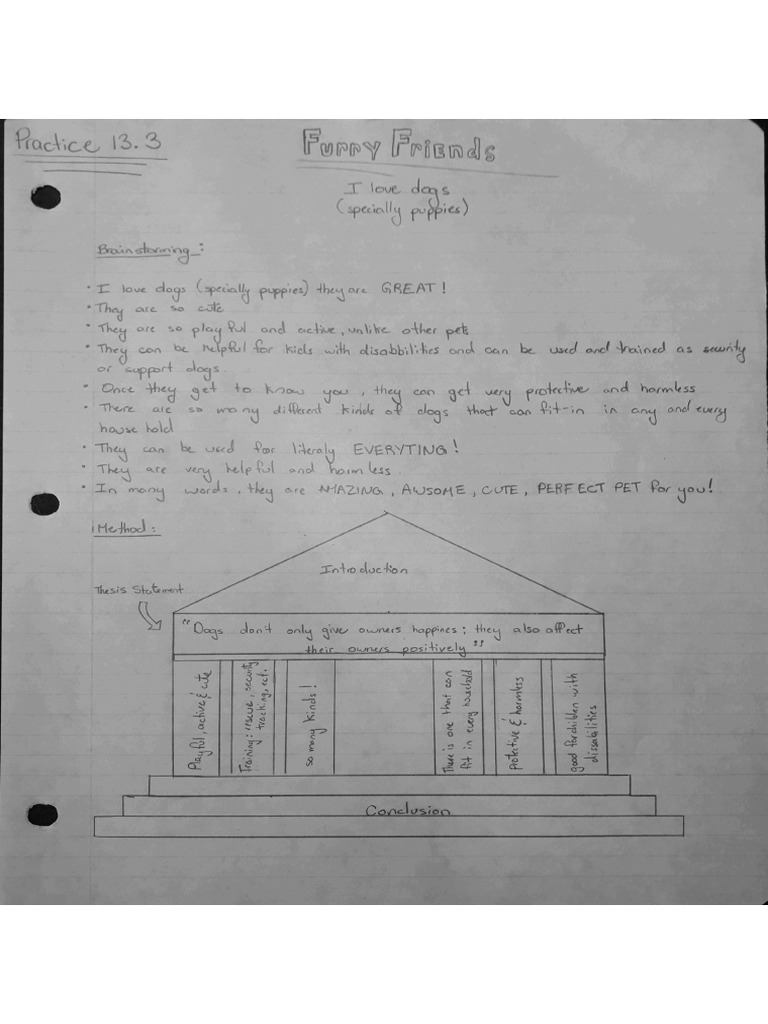 Practice 13.3
Furry Friends
I love dogs
(specially puppies)
Brainstorming :
• I love dogs (specially puppies) they are GREAT!
• They are so cute
• They are so playful and active, unlike other pets
• They can be helpful for kids with disabbilities and can be used and trained as security
or support dogs.
• Once they get to know you, they can get very protective and harmless
• There are so many different kinds of dogs that can fit-in in any and every
house hold
• They can be used for literaly EVERYTING!
• They are very helpful and harmless.
• In many words, they are AMAZING, AWSOME, CUTE, PERFECT PET for you!
Method:
Introduction
Thesis Statement
"Dogs don't only give owners happines; they also affect
their owners positively"
Playful, active & cute
Training: rescue, security
tracking, ect.
so many kinds!
There is one that can
fit in every household
protective & harmless
good for chilben with
dissabilities
Conclusion